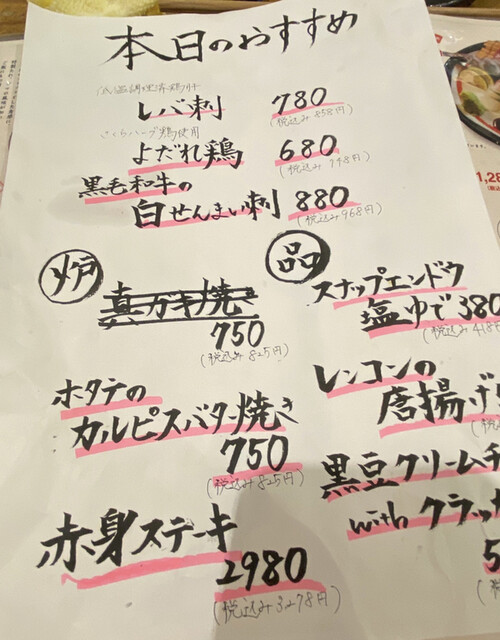 本日のおすすめ
低温調理済鶏レバー
レバ刺 780
(税込み858円)
さくらハーブ鶏使用
よだれ鶏 680
(税込み748円)
黒毛和牛の
白せんまい刺 880
(税込み968円)
炉
真カキ焼き
750
(税込み825円)
ホタテの
カルピスバター焼き
750
(税込み825円)
赤身ステーキ
2980
(税込み3278円)
品
スナップエンドウ
塩ゆで 380
(税込み418円
レンコンの
唐揚げ
(税込
黒豆クリームチ
with クラッ
5
(税
1,28